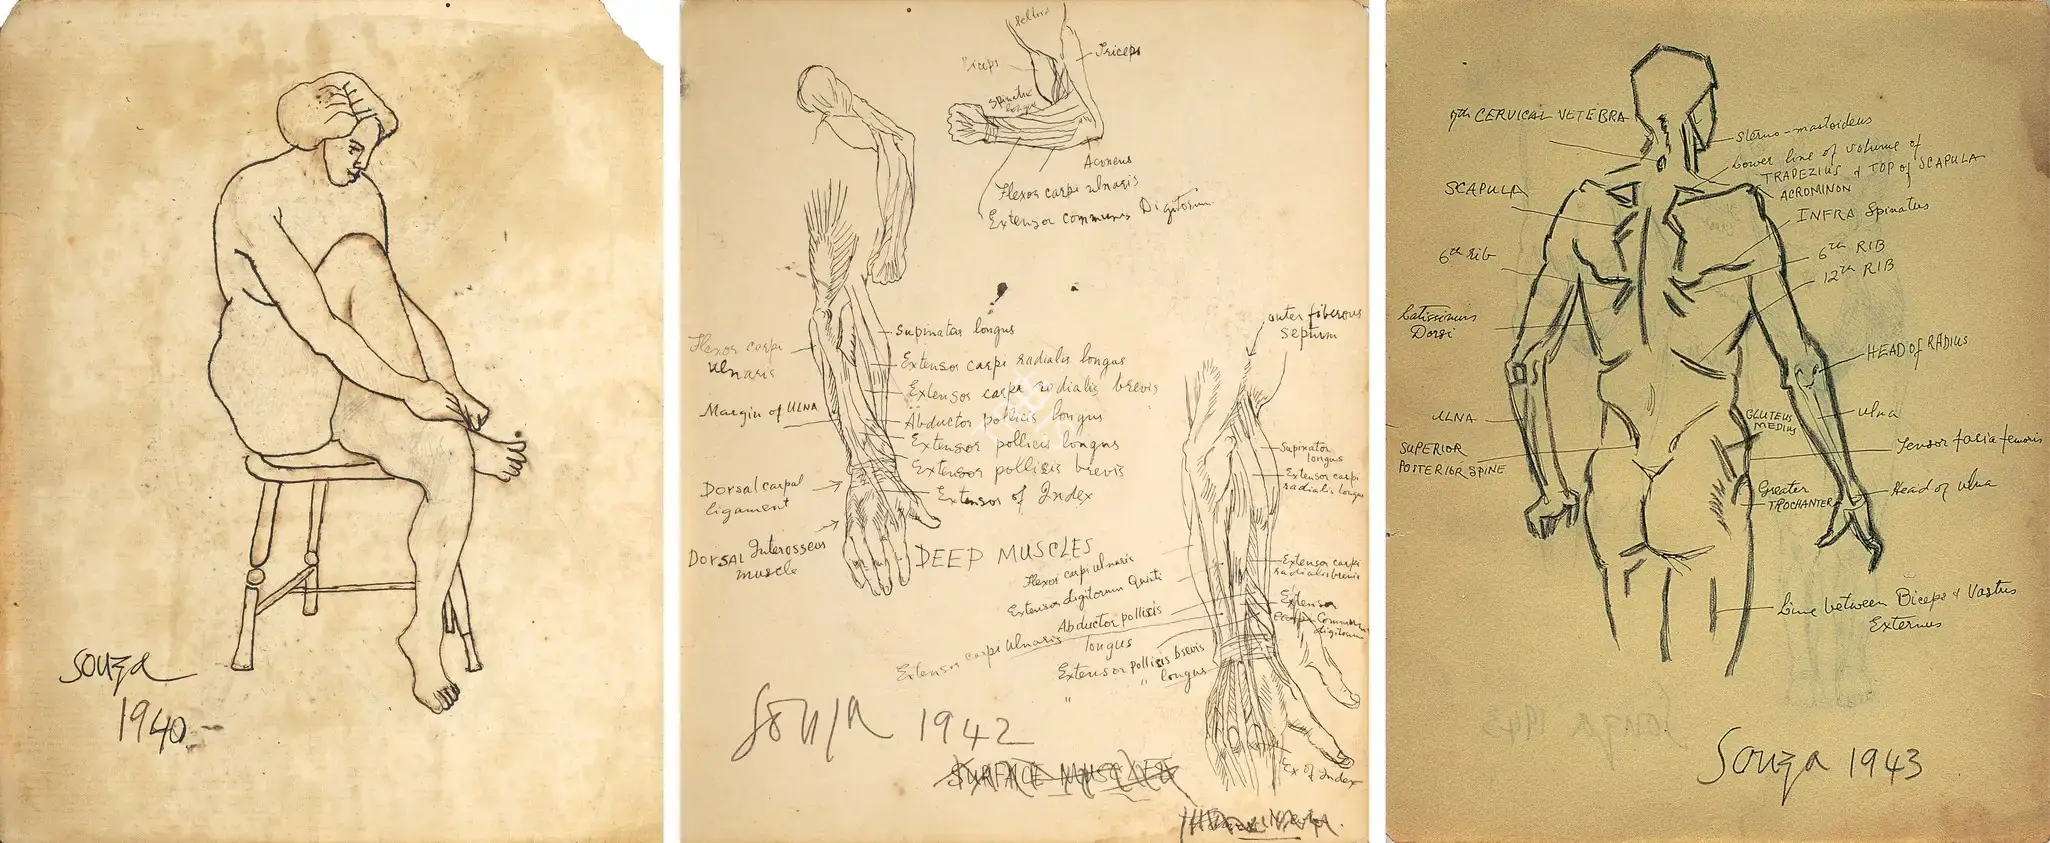 Souza
1940
Biceps
Triceps
Supinator
longus
Aconeus
Flexor carpi ulnaris
Extensor communis Digitorum
Flexor carpi
ulnaris
Margin of ULNA
Dorsal carpal
ligament
DORSAL Interosseus
muscle
Supinator longus
Extensor carpi radialis longus
Extensor carpi radialis brevis
Abductor pollicis longus
Extensor pollicis longus
Extensor pollicis brevis
Extensor of Index
DEEP MUSCLES
outer fiberous
septum
Supinator
longus
Extensor carpi
radialis longus
Flexor carpi ulnaris
Extensor digitorum Quinti
Abductor pollicis
longus
Extensor carpi ulnaris
Extensor pollicis brevis
" longus
"
Extensor carpi
radialis brevis
Extensor
Communis
digitorum
Ex of Index
Souza 1942
SURFACE MUSCLES
7th CERVICAL VETEBRA
SCAPULA
6th rib
Latissimus
Dorsi
ULNA
SUPERIOR
POSTERIOR SPINE
Sterno-mastoideus
Lower line of volume of
TRAPEZIUS & TOP of SCAPULA
ACROMINON
INFRA Spinatus
6th RIB
12th RIB
HEAD of RADIUS
ulna
GLUTEUS
MEDIUS
Tensor facia femoris
Greater
TROCHANTER
Head of ulna
Line between Biceps & Vastus
Externus
Souza 1943